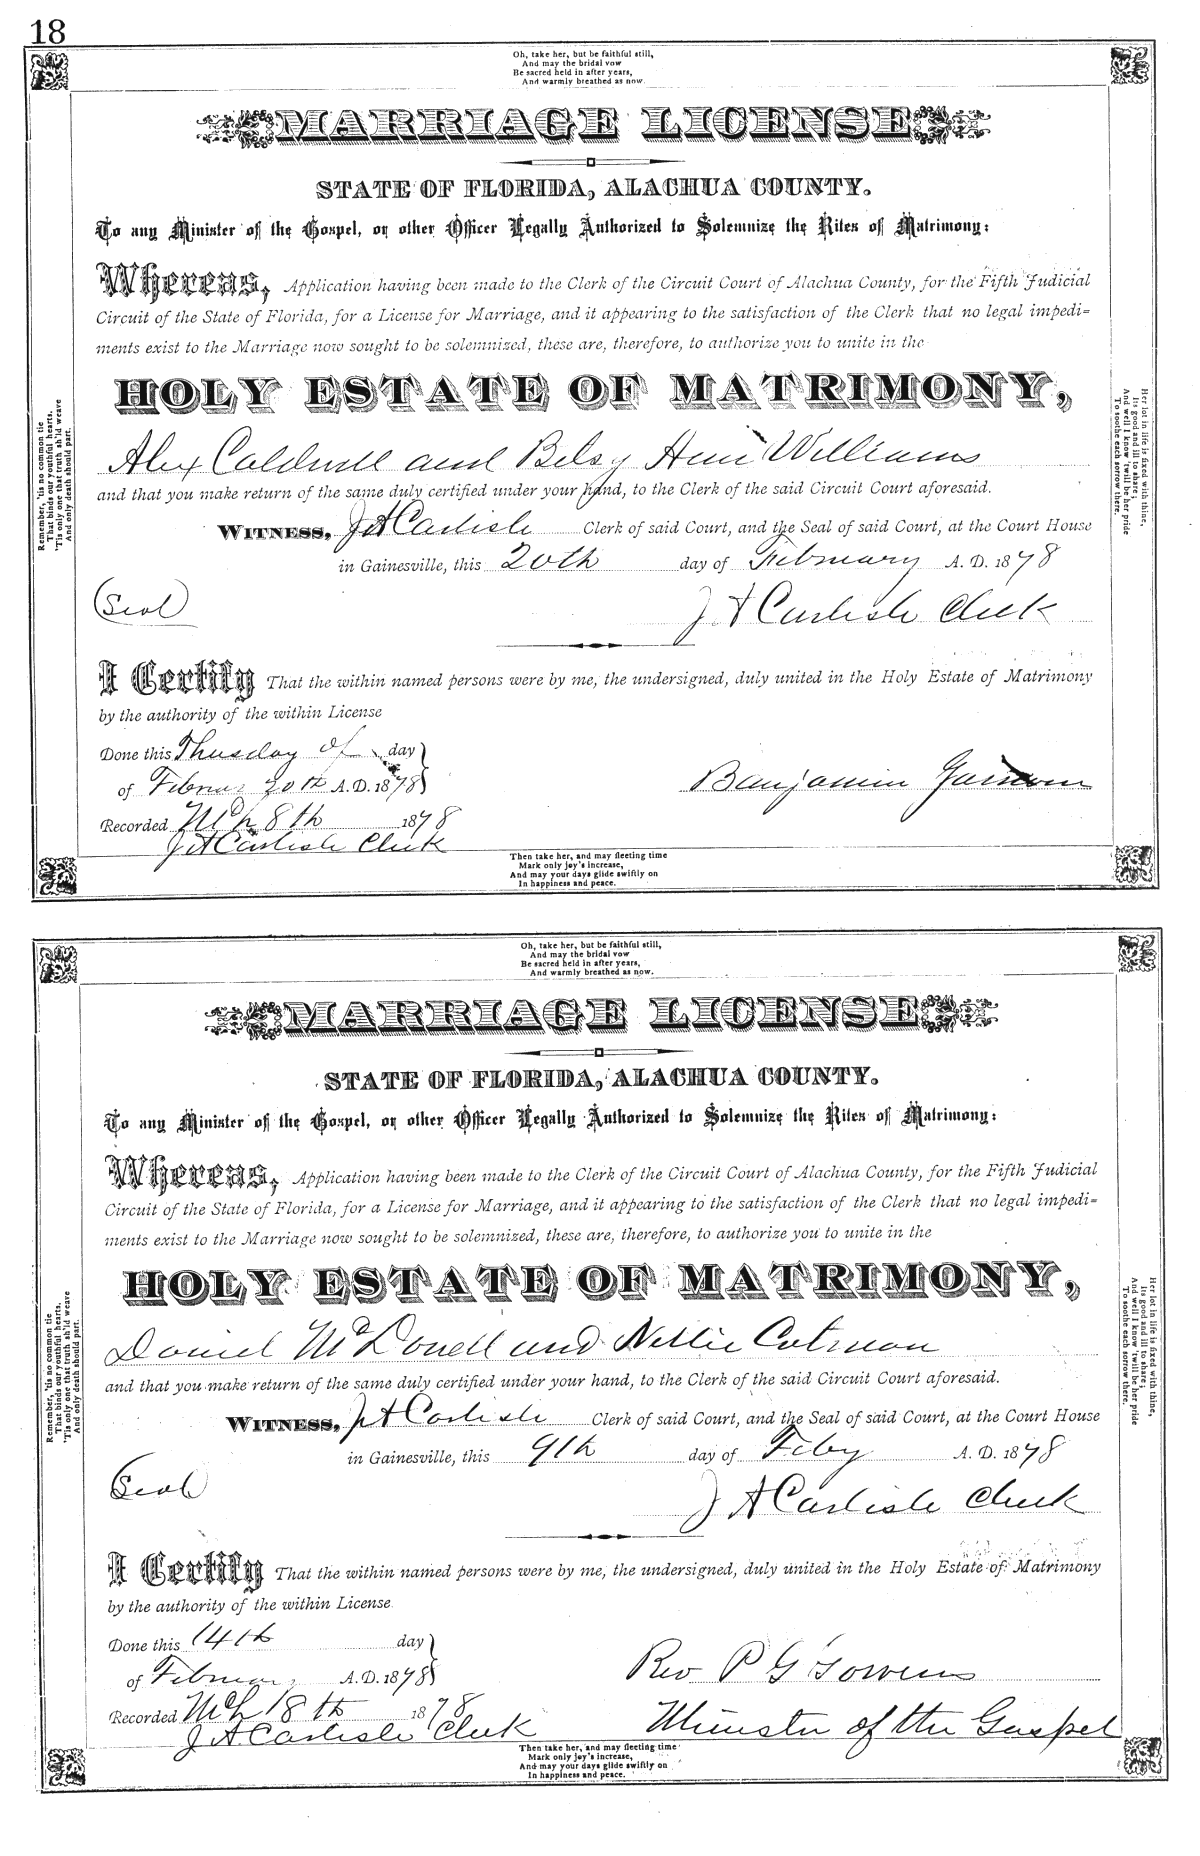 18
Oh, take her, but be faithful still,
And may the bridal vow
Be sacred held in after years,
And warmly breathed as now.
MARRIAGE LICENSE
STATE OF FLORIDA, ALACHUA COUNTY.
To any Minister of the Gospel, or other Officer Legally Authorized to Solemnize the Rites of Matrimony:
Whereas, Application having been made to the Clerk of the Circuit Court of Alachua County, for the Fifth Judicial
Circuit of the State of Florida, for a License for Marriage, and it appearing to the satisfaction of the Clerk that no legal impedi=
ments exist to the Marriage now sought to be solemnized, these are, therefore, to authorize you to unite in the
HOLY ESTATE OF MATRIMONY,
Remember, 'tis no common tie
That binds our youthful hearts,
'Tis only one that truth sh'ld weave
And only death should part.
Her lot in life is fixed with thine,
Its good and ill to share;
And well I know 'twill be her pride
To soothe each sorrow there.
Alex Caldwell and Betsy Williams
and that you make return of the same duly certified under your hand, to the Clerk of the said Circuit Court aforesaid.
WITNESS, J A Carlisle Clerk of said Court, and the Seal of said Court, at the Court House
in Gainesville, this 20th day of February A. D. 1878
(Seal)
J. A Carlisle Clerk
I Certify That the within named persons were by me, the undersigned, duly united in the Holy Estate of Matrimony
by the authority of the within License
Done this Thusday of day
of 20th A. D. 1878
Banjamin
Recorded Mch 8th 1878
J A Carlisle Clerk
Then take her, and may fleeting time
Mark only joy's increase,
And may your days glide swiftly on
In happiness and peace.
Oh, take her, but be faithful still,
And may the bridal vow
Be sacred held in after years,
And warmly breathed as now.
MARRIAGE LICENSE
STATE OF FLORIDA, ALACHUA COUNTY.
To any Minister of the Gospel, or other Officer Legally Authorized to Solemnize the Rites of Matrimony:
Whereas, Application having been made to the Clerk of the Circuit Court of Alachua County, for the Fifth Judicial
Circuit of the State of Florida, for a License for Marriage, and it appearing to the satisfaction of the Clerk that no legal impedi=
ments exist to the Marriage now sought to be solemnized, these are, therefore, to authorize you to unite in the
HOLY ESTATE OF MATRIMONY,
Remember, 'tis no common tie
That binds our youthful hearts,
'Tis only one that truth sh'ld weave
And only death should part.
Her lot in life is fixed with thine,
Its good and ill to share;
And well I know 'twill be her pride
To soothe each sorrow there.
Daniel McDonell and Nellie Cutman
and that you make return of the same duly certified under your hand, to the Clerk of the said Circuit Court aforesaid.
WITNESS, J A Carlisle Clerk of said Court, and the Seal of said Court, at the Court House
in Gainesville, this 9th day of Feby A. D. 1878
(Seal)
J A Carlisle Clerk
I Certify That the within named persons were by me, the undersigned, duly united in the Holy Estate of Matrimony
by the authority of the within License
Done this 14th day
of February A. D. 1878
Rev P G Gowens
Recorded Mch 18th 1878
Minister of the Gospel
J. A Carlisle Clerk
Then take her, and may fleeting time
Mark only joy's increase,
And may your days glide swiftly on
In happiness and peace.